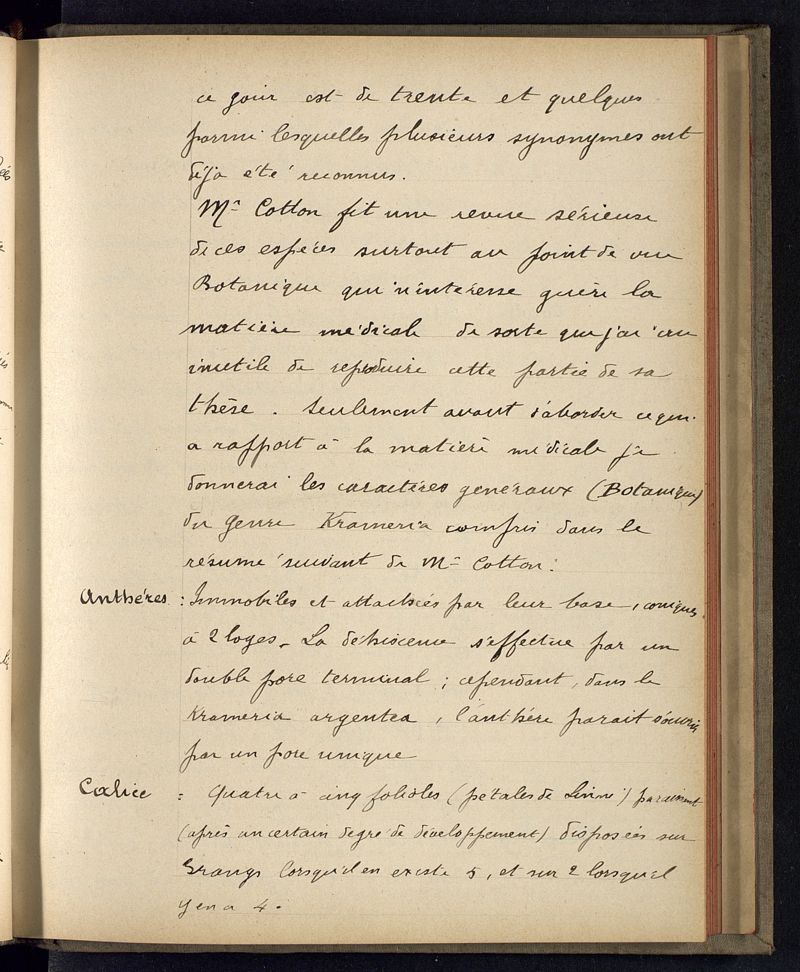 ce jour est de trente et quelques
parmi lesquelles plusieurs synonymes ont
déja été reconnus.
Mr Cotton fit une revue sérieuse
de ces espéces surtout au point de vue
Botanique qui n'intéresse guère la
matière médicale de sorte que j'ai cru
inutile de reproduire cette partie de sa
thèse. Seulement avant d'aborder ce qui
a rapport à la matière médicale je
donnerai les caractères generaux (Botanique)
du genre Krameria compris dans le
résumé suivant de Mr Cotton:
Anthéres : Immobiles et attachées par leur base, coniques
à 2 loges. La déhiscence s'effectue par un
double pore terminal ; cependant, dans le
Krameria argentea, l'anthère parait s'ouvrir
par un pore unique
Calice : Quatre à cinq folioles (pétales de Linné) paraissent
(après un certain degré de développement) disposées sur
3 rangs lorsqu'il en existe 5, et sur 2 lorsqu'il
y en a 4.